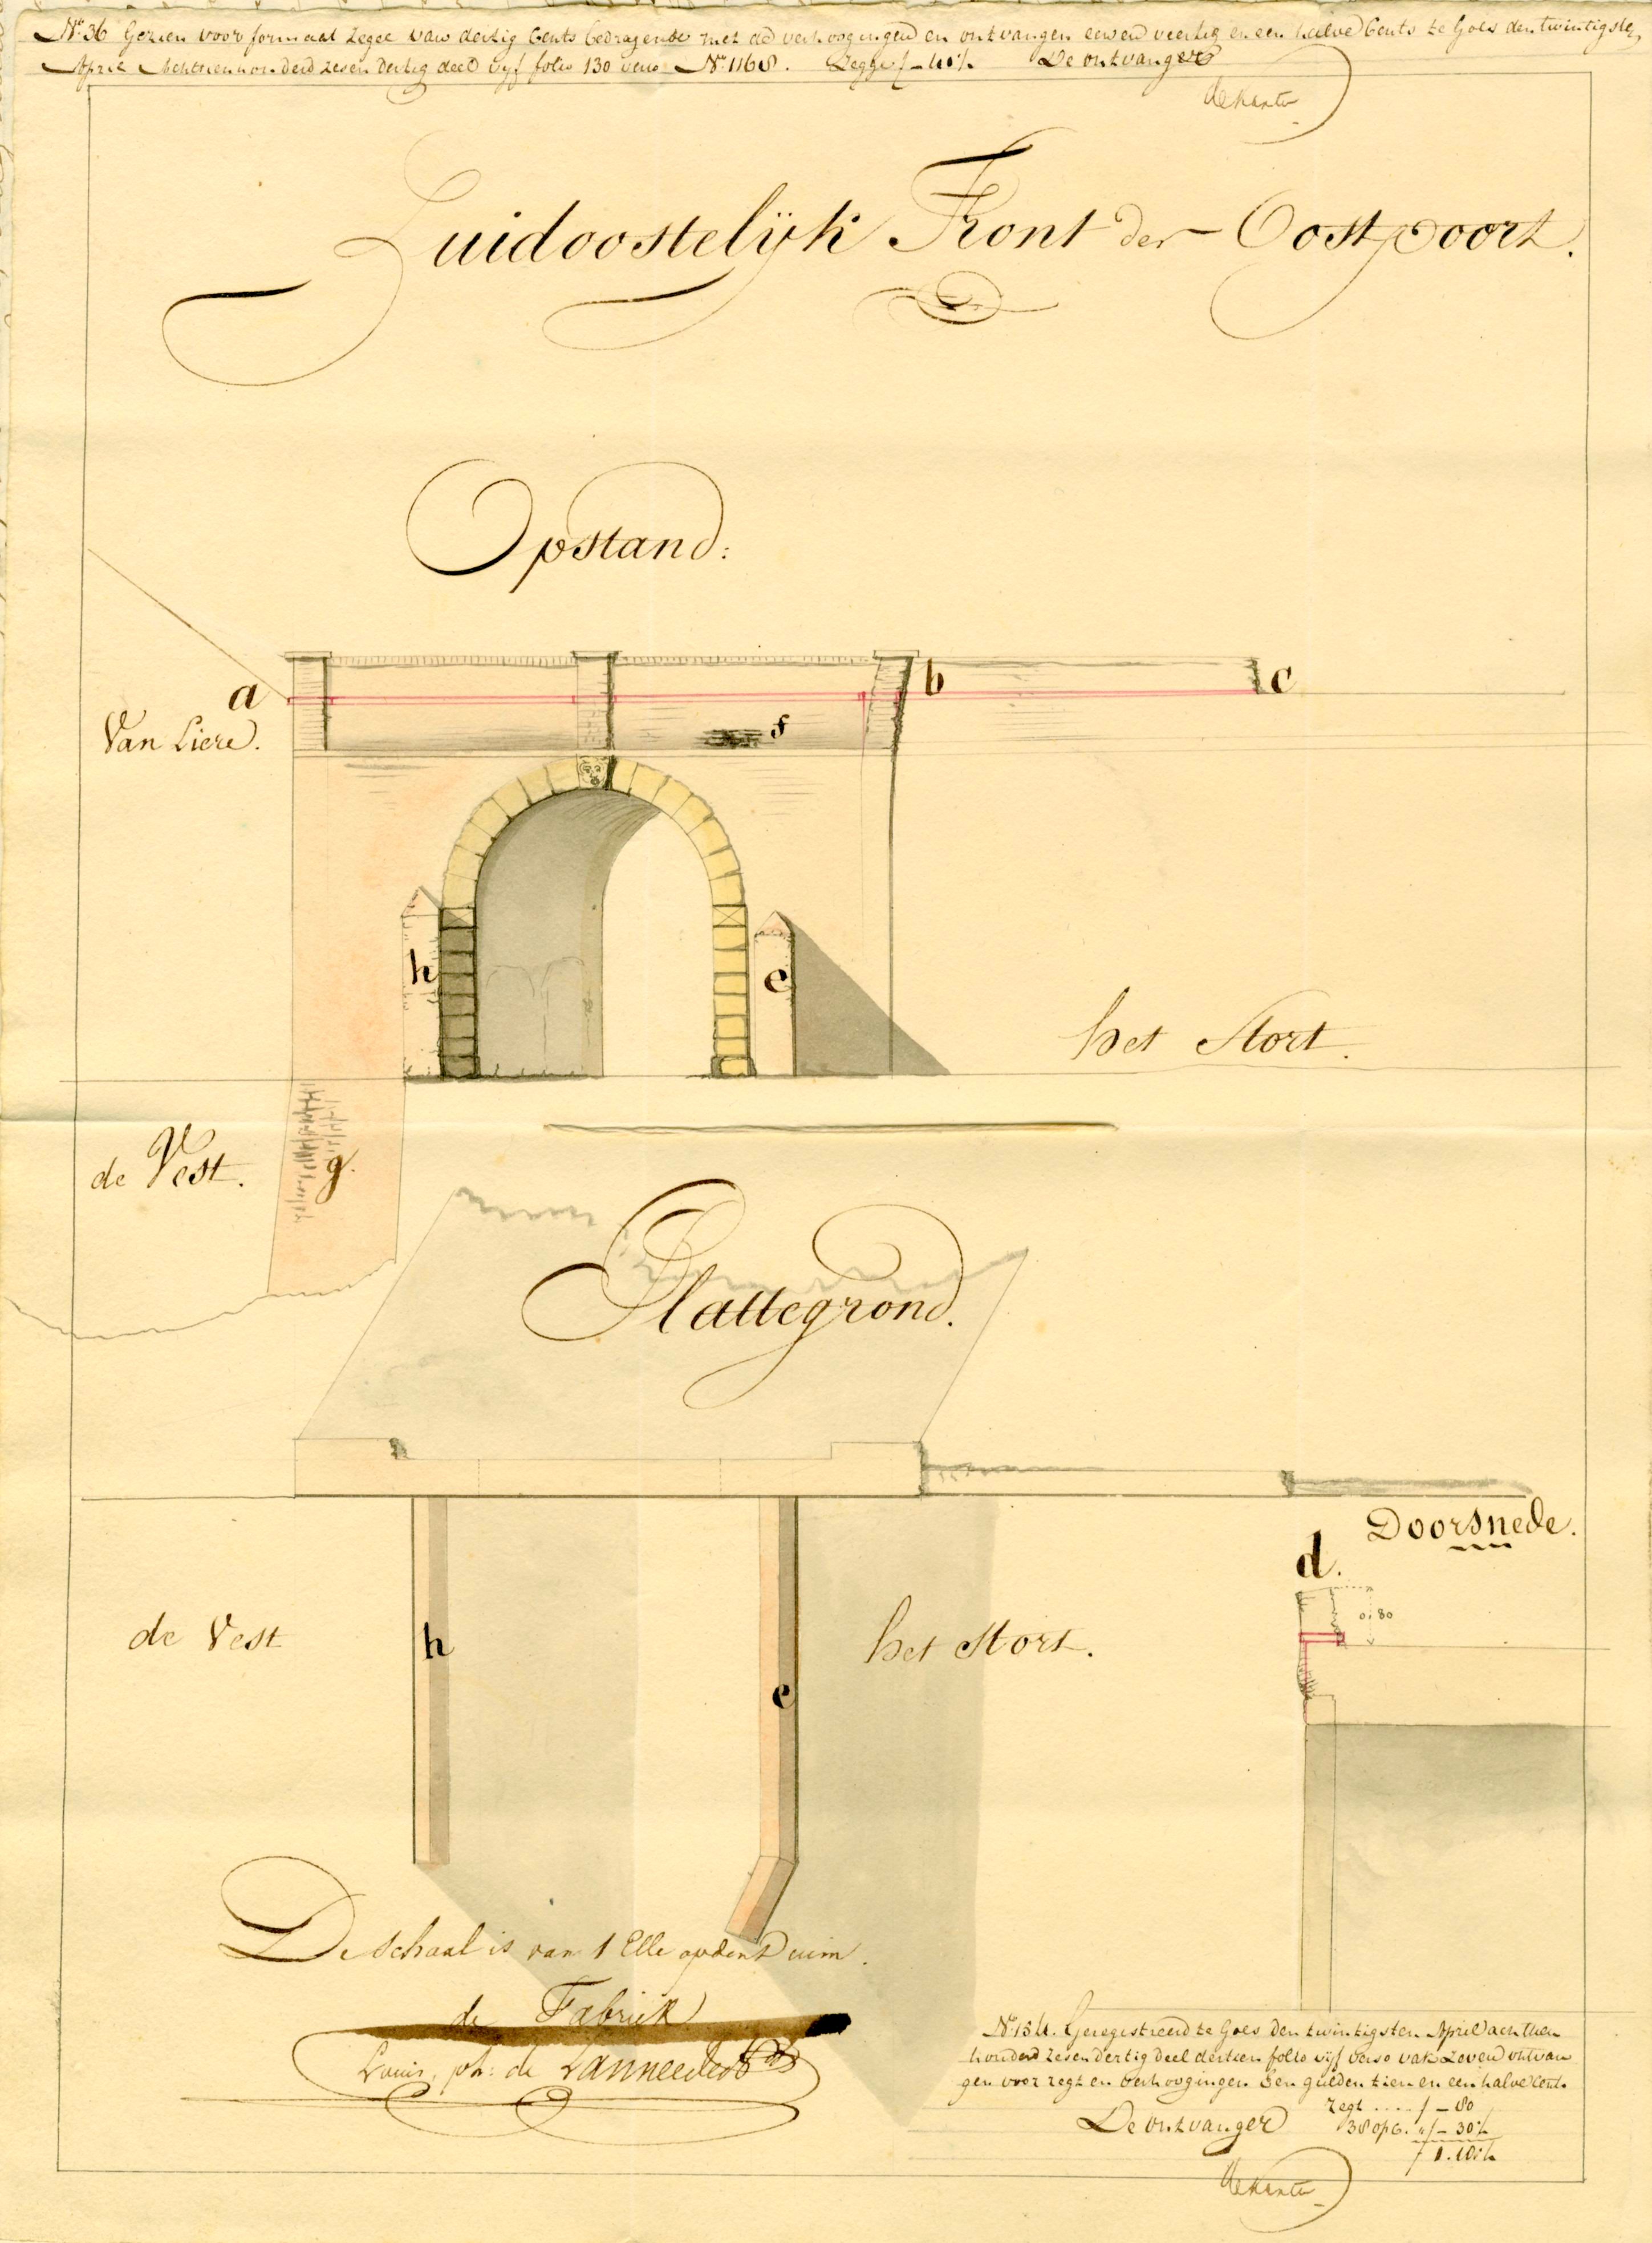 No. 36 Gezien voor formaat zegel van dertig Cents bedragende met de verhoogingen en ontvangen eenen veertig en een halve Cents te Goes den twintigste
April Achttienhonderd zesen dertig deel vyf folio 130 verso No. 1168. Zegge f - 40½ De ontvanger
Zuidoostelÿk Front der Oostpoort.
Opstand:
a
b
c
Van Liere.
f
h
e
het Stort.
de Vest.
g.
Plattegrond.
Doorsnede.
d.
0,80
de Vest
h
het Stort.
e
De Schaal is van 1 Elle op den Duim.
de Fabriek
Louis, ph: de
No. 154. Geregistreerd te Goes den twintigsten April achttien
honderd zesendertig deel dertien folio vyf verso vak zeven ontvan
gen voor regt en verhoogingen een gulden tien en een halve Cent.
regt .... f - 80
De ontvanger 38 opc. " f - 30½
f 1.10½